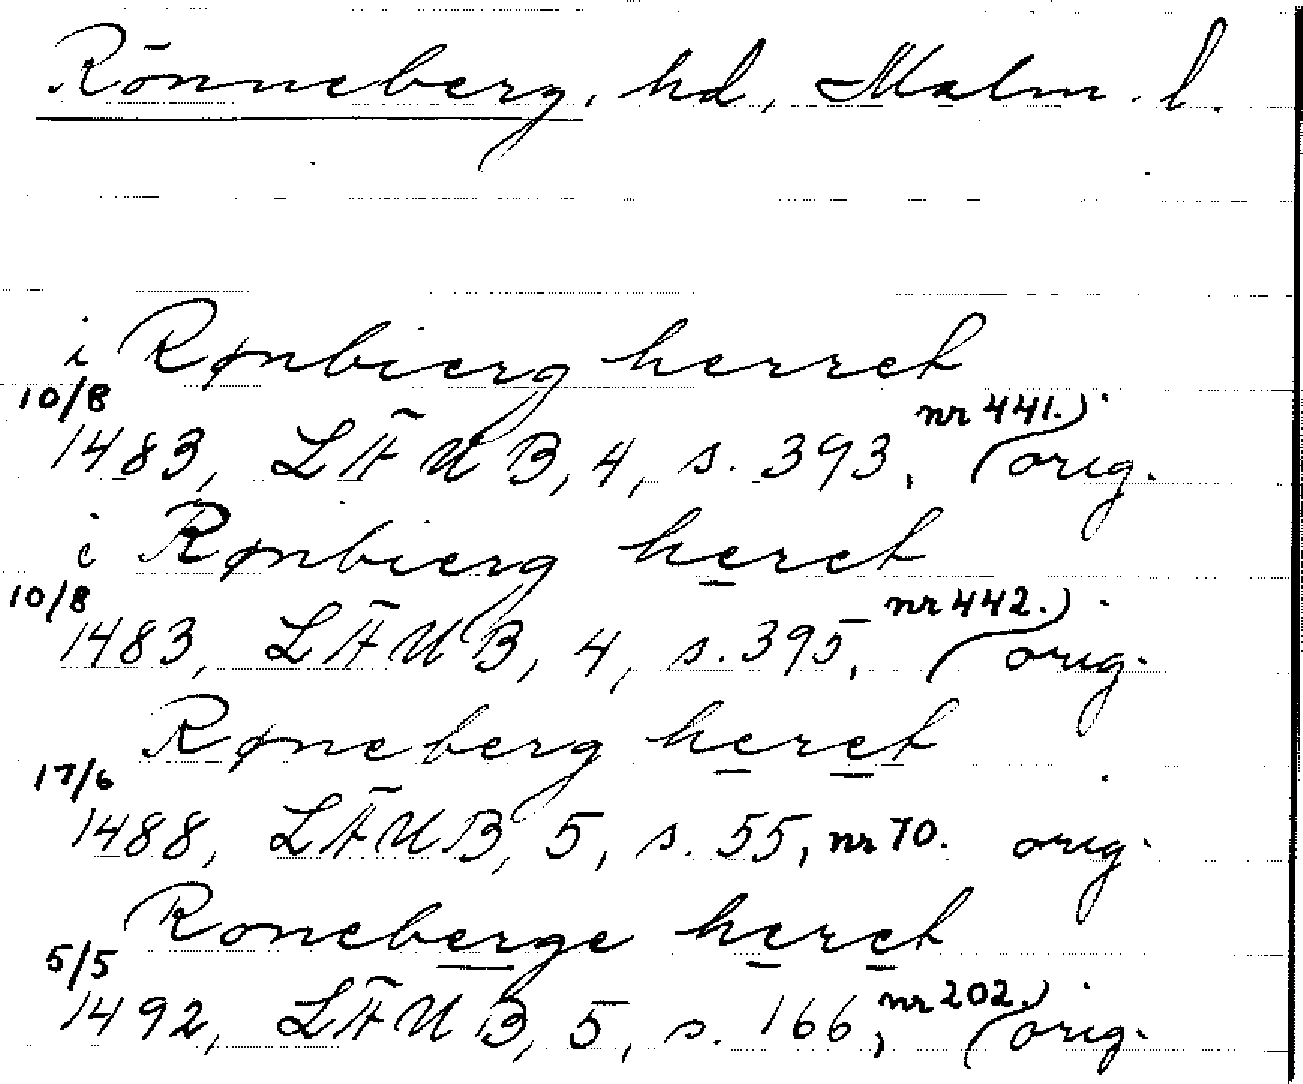 Rönneberg, hd, Malm. l.
i Rønbierg herret
10/8
1483, LÄUB, 4, s. 393, nr 441. orig.
i Rønbierg heret
10/8
1483, LÄUB, 4, s. 395, nr 442. orig.
Røneberg heret
17/6
1488, LÄUB, 5, s. 55, nr 70. orig.
Roneberge heret
5/5
1492, LÄUB, 5, s. 166, nr 202. orig.